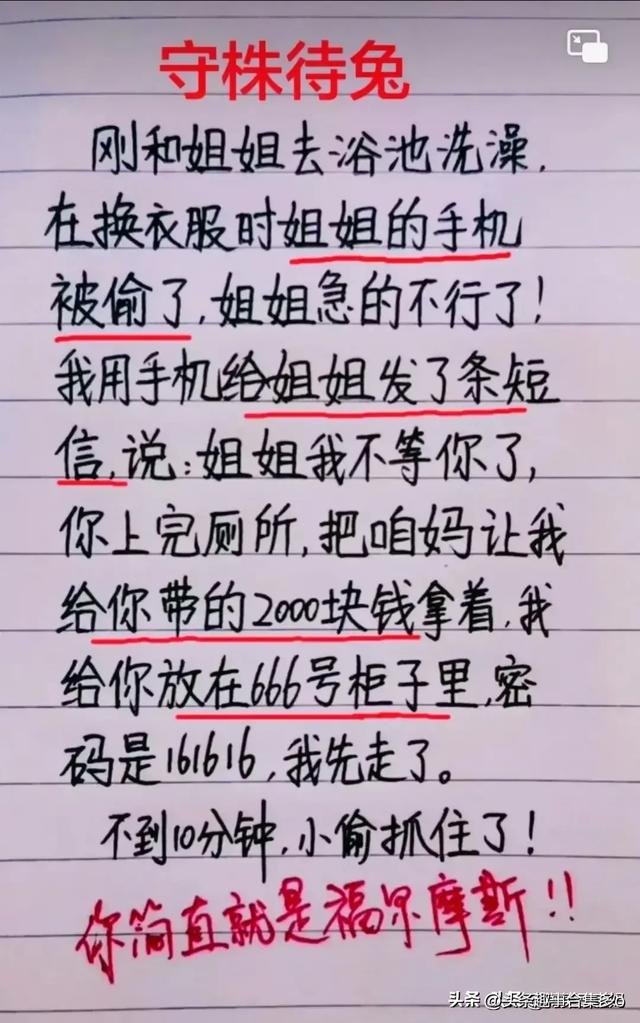 守株待兔
刚和姐姐去浴池洗澡,
在换衣服时姐姐的手机
被偷了,姐姐急的不行了!
我用手机给姐姐发了条短
信,说:姐姐我不等你了,
你上完厕所,把咱妈让我
给你带的2000块钱拿着,我
给你放在666号柜子里,密
码是161616,我先走了。
不到10分钟,小偷抓住了!
你简直就是福尔摩斯!!
头条 @